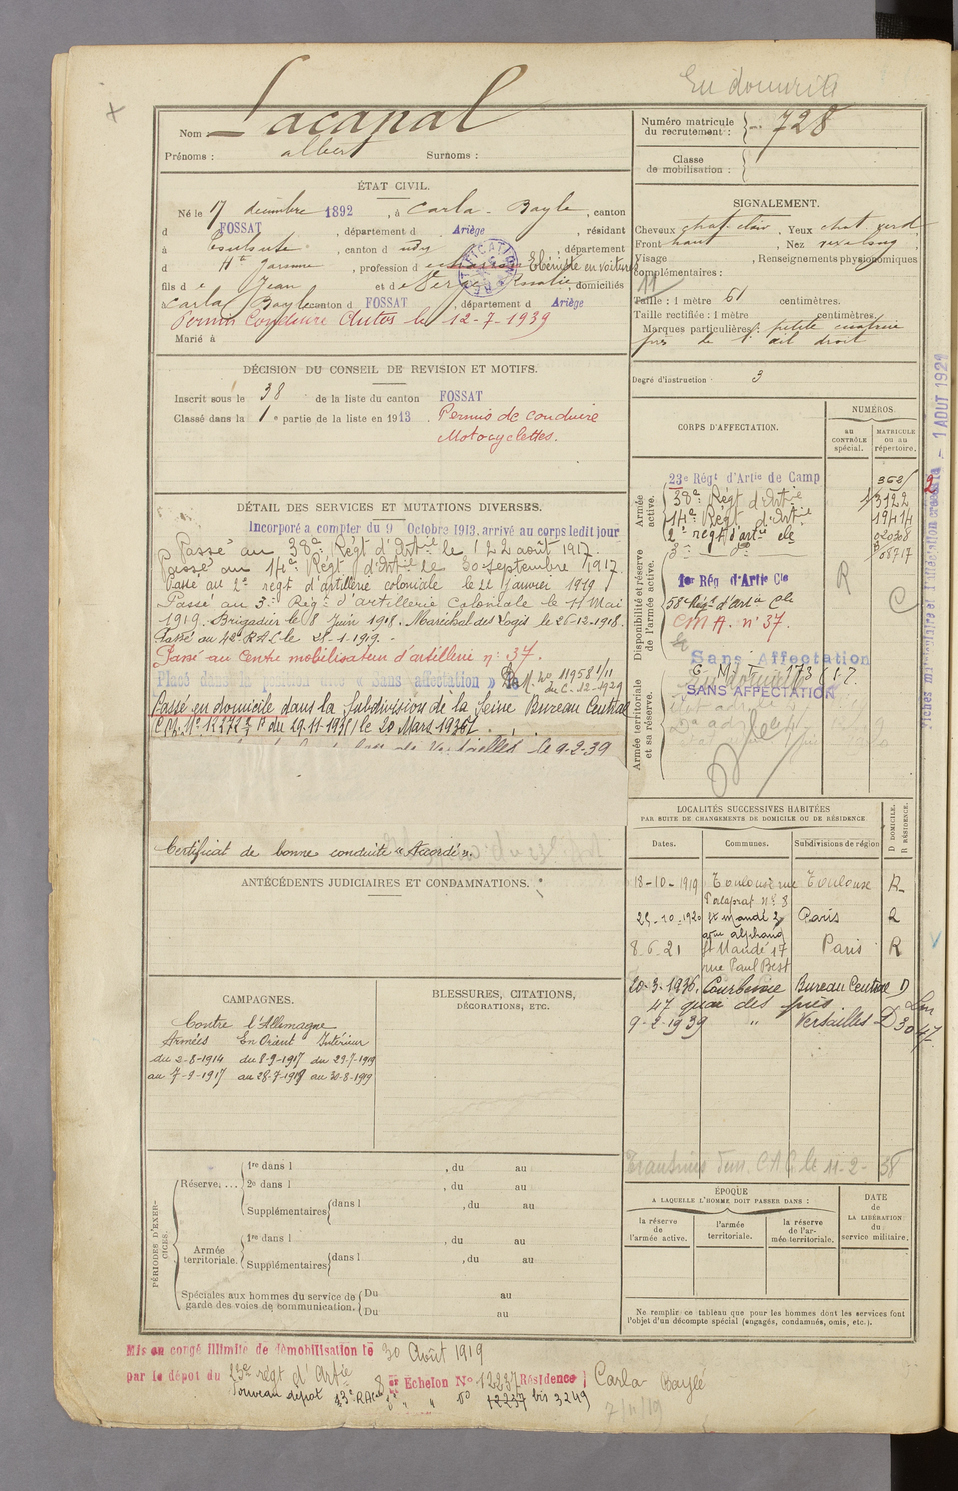 En domicile
Nom Lacanal
Prénoms : albert Surnoms :
Numéro matricule du recrutement : 728
Classe de mobilisation :
ÉTAT CIVIL.
Né le 17 décembre 1892, à Carla-Bayle, canton
d FOSSAT, département d Ariège, résidant
à Toulouse, canton d udy, département
d Hte Garonne, profession d Ebéniste en voitures
fils de Jean et de Rosalie, domiciliés
à Carla Bayle canton d FOSSAT, département d Ariège
Permis Conduire Autos le 12-7-1939
Marié à
SIGNALEMENT.
Cheveux chat. clair. Yeux chat. verd
Front haut, Nez
Visage , Renseignements physionomiques
complémentaires :
11
Taille : 1 mètre 61 centimètres.
Taille rectifiée : 1 mètre centimètres.
Marques particulières : petite cicatrice
près de l'œil droit
Degré d'instruction : 3
DÉCISION DU CONSEIL DE REVISION ET MOTIFS.
Inscrit sous le 38 de la liste du canton FOSSAT
Classé dans la 1e partie de la liste en 1913. Permis de conduire
Motocyclettes.
DÉTAIL DES SERVICES ET MUTATIONS DIVERSES.
Incorporé a compter du 9 Octobre 1913, arrivé au corps ledit jour
Passé au 38e Régt d'Artie le 22 août 1917.
Passé au 14e Régt d'Artie le 30 septembre 1917.
Passé au 2e régt d'artillerie coloniale le 21 janvier 1919
Passé au 3e Régt d'artillerie Coloniale le 11 Mai
1919. Brigadier le 8 Juin 1918. Maréchal des Logis le 26-12-1918.
Passé au Centre mobilisateur d'artillerie n° 37.
Placé dans la position dite « Sans affectation »
No 11958 1/11
du 6-12-1929
Passé en domicile dans la Subdivision de la Seine Bureau Central
du 29-11-1935 le 20 Mars 1936
Versailles le 9-2-39
Certificat de bonne conduite « Accordé ».
CORPS D'AFFECTATION.
NUMÉROS
au CONTRÔLE spécial.
MATRICULE ou au répertoire.
Armée active.
23e Régt d'Artie de Camp
38e Régt d'Artie 3122
14e Régt d'Artie 17414
2e régt d'artie cle 020308
3e 08717
Disponibilité et réserve de l'armée active.
1er Rég d'Artie Cle
58e Régt d'Artie Cle
C M A. n° 37.
Sans Affectation
SANS AFFECTATION
Armée territoriale et sa réserve.
R
C
Fiches matriculaire et d'affectation
1 AOUT 1921
ANTÉCÉDENTS JUDICIAIRES ET CONDAMNATIONS.
LOCALITÉS SUCCESSIVES HABITÉES
PAR SUITE DE CHANGEMENTS DE DOMICILE OU DE RÉSIDENCE
Dates. Communes. Subdivisions de région D DOMICILE. R RÉSIDENCE.
18-10-1919 Toulouse rue Peleprat n° 8 Toulouse R
25-10-1920 St Mandé Paris R
8-6-21 St Mandé 17 rue Paul Bert Paris R
20-3-1936 Courbevoie Bureau Central D
47 quai des
9-2-1939 " Versailles D
CAMPAGNES.
Contre l'Allemagne
Armées En Orient Intérieur
du 2-8-1914 du 8-9-1917 du 29-7-1919
au 7-9-1917 au 28-7-1919 au 30-8-1919
BLESSURES, CITATIONS,
DÉCORATIONS, ETC.
PÉRIODES D'EXERCICES.
Réserve, ...
1re dans l , du au
2e dans l , du au
Supplémentaires dans l , du au
Armée territoriale.
1re dans l , du au
Supplémentaires dans l , du au
Spéciales aux hommes du service de garde des voies de communication.
Du au
Du au
le 11-2-38
ÉPOQUE
A LAQUELLE L'HOMME DOIT PASSER DANS :
la réserve de l'armée active.
l'armée territoriale.
la réserve de l'armée territoriale.
DATE de LA LIBÉRATION du service militaire.
Ne remplir ce tableau que pour les hommes dont les services font
l'objet d'un décompte spécial (engagés, condamnés, omis, etc.).
Mis en congé illimité de démobilisation le 30 Août 1919
par le dépot du 23e régt d'Artie 8 Echelon No 12237 Résidence Carla Bayle
12237 bis 3249
7/11/19